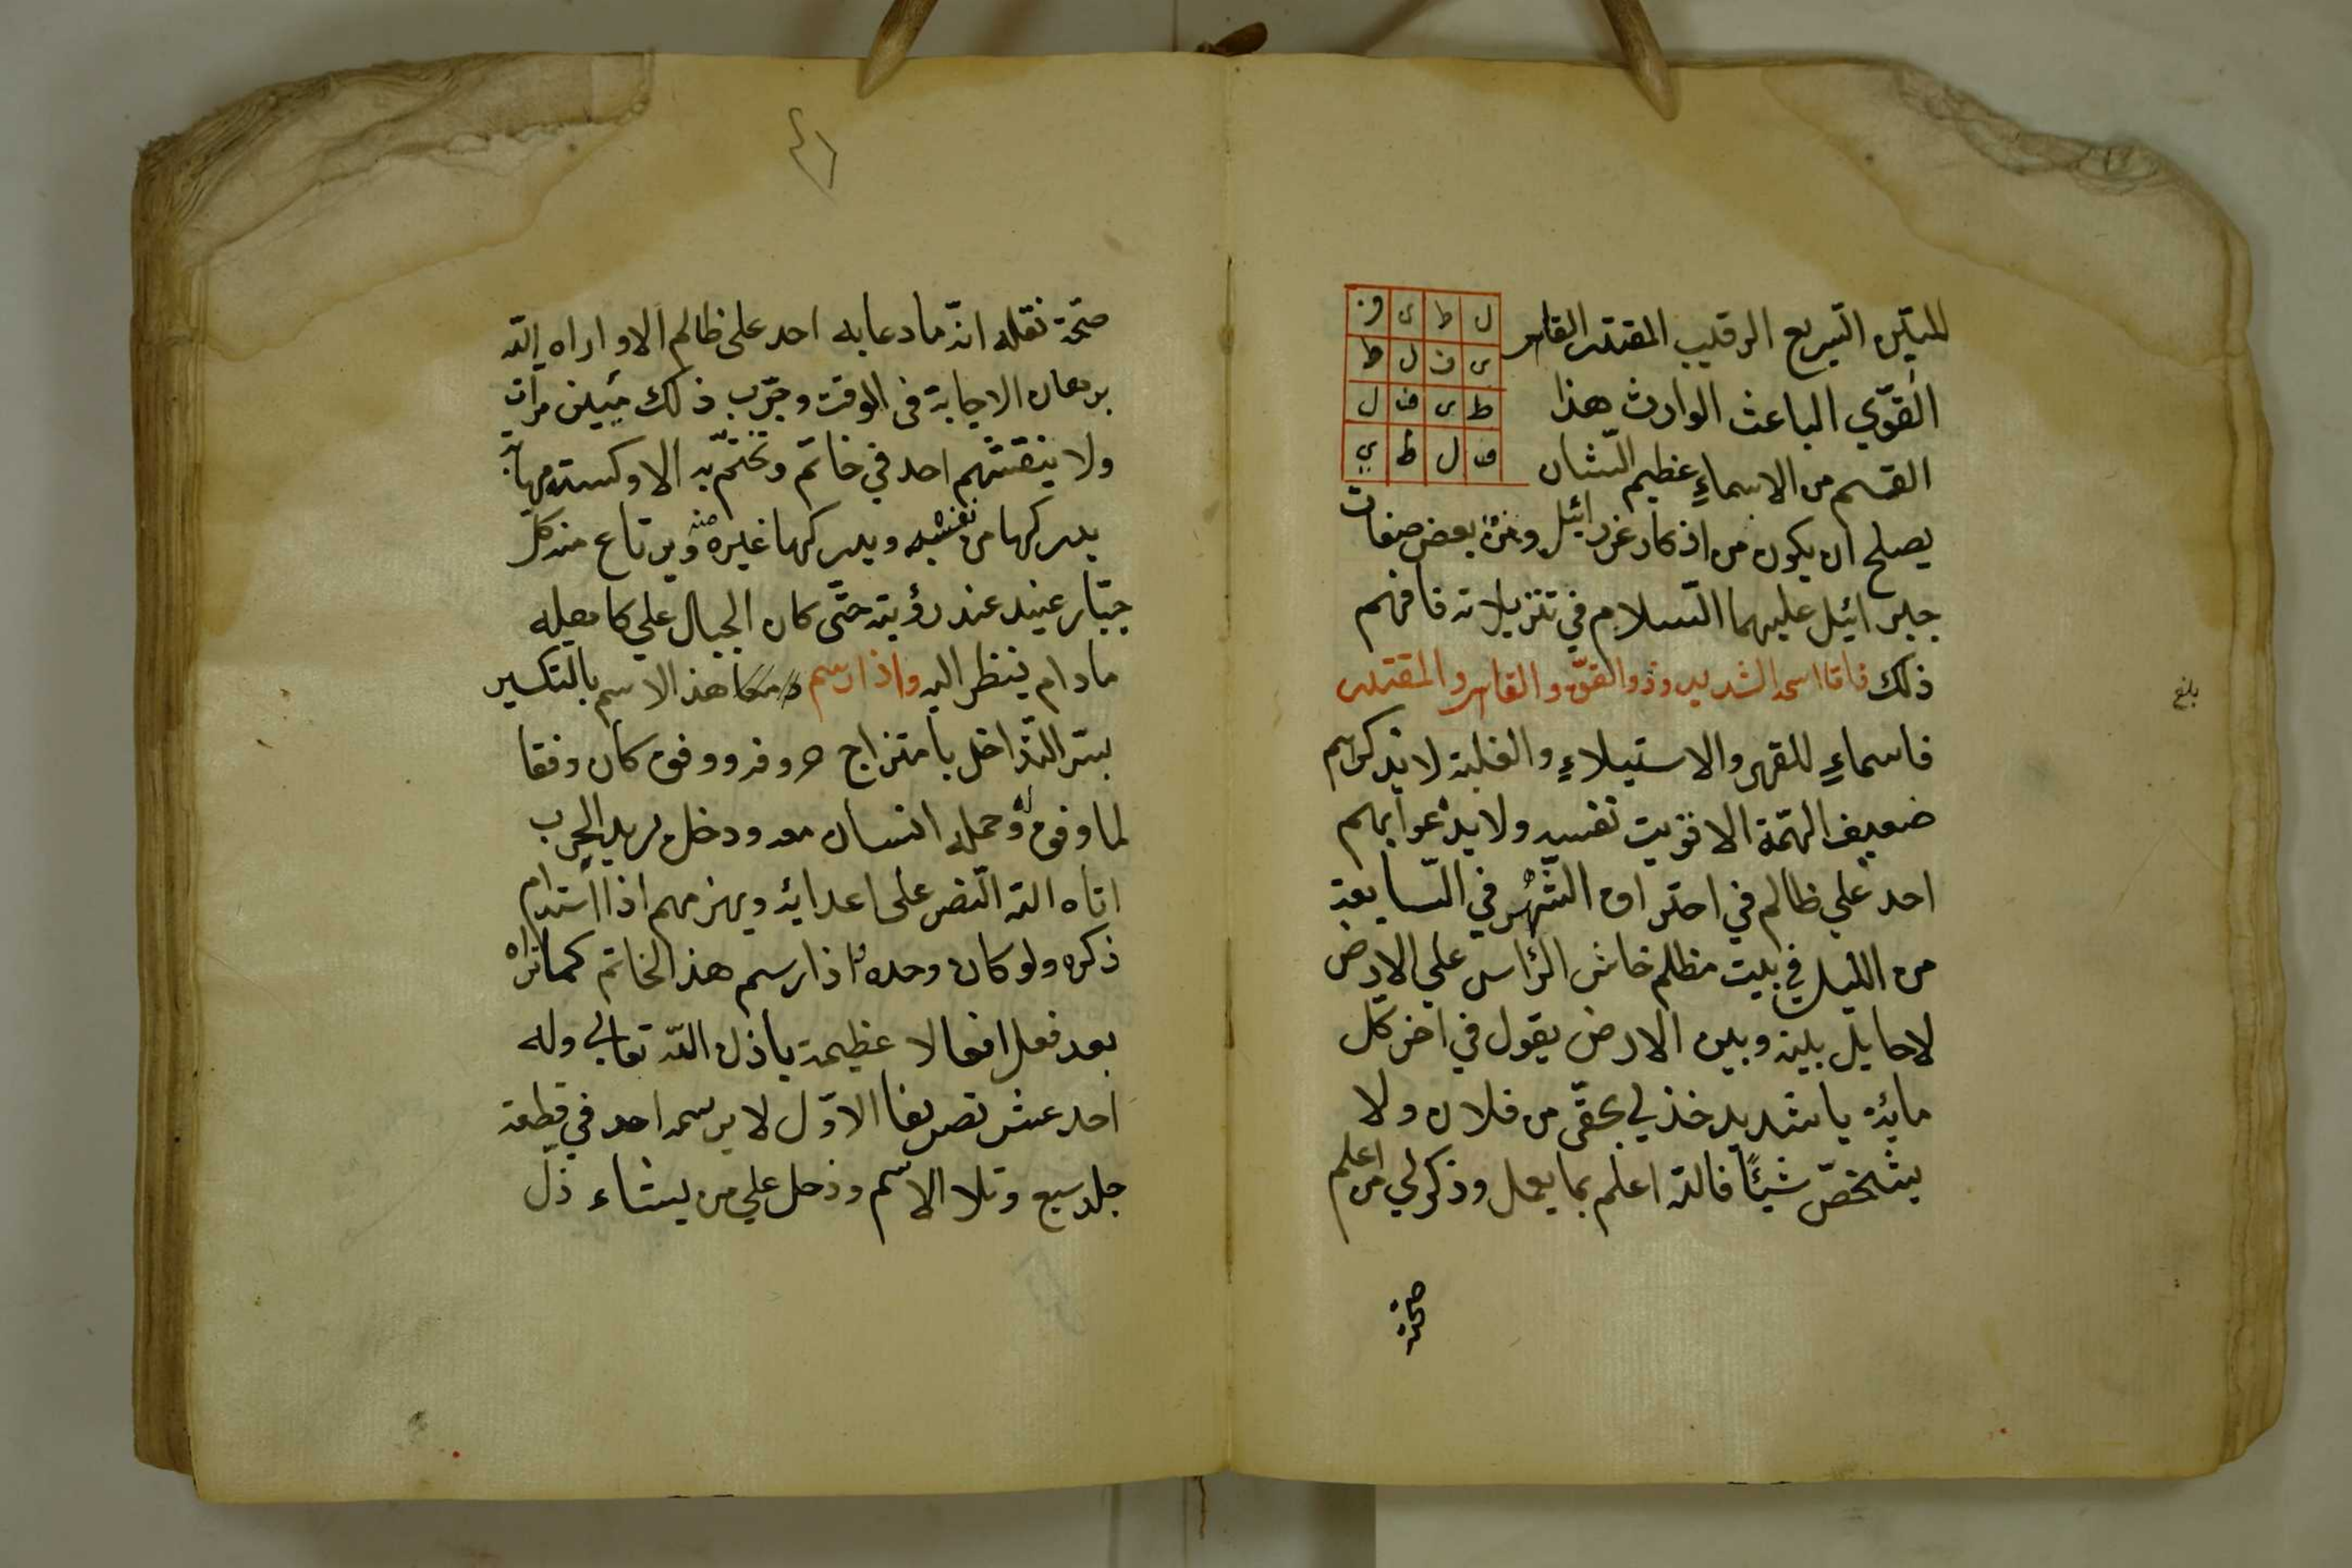 المتين السريع الرقيب المقتدر القاهر
ل ط ى ف
ى ف ل ط
ط ى ف ل
ف ل ط ي
القوّي الباعث الوارث هذا
القسم من الاسماءِ عظيم الشان
يصلح ان يكون من اذكار عزرائيل ومن بعض صفات
جبرائيل عليهما السلام في تنزيلاته فافهم
ذلك فامّا اسمه الشديد وذو القوّة والقاهر والمقتدر
فاسماءِ للقهر والاستيلاءِ والغلبة لا يذكرهم
ضعيف الهمّة الا قويت نفسه ولا يدعوا بهم
احد علي ظالم في احتراق الشهر في السابعة
من الليل في بيت مظلم حاسر الرأس علي الارض
لا حايل بينه وبين الارض يقول في آخر كل
مائة يا شديد خذ لي بحقّي من فلان ولا
يشخصّ شيئًا فالله اعلم بما يعمل وذكر لي من اعلم
صحّة
بلغ
٤١
صحّة نقله انّه ما دعا به احد على ظالم الا واراه الله
برهان الاجابة فى الوقت وجرّب ذلك مرات
ولا ينقشهم احد في خاتم وتختّم به الا وكسته مهابة
يدركها من نفسه ويدركها غيره منه ويرتاع منه كل
جبّار عنيد عند رؤيته حتّى كان الجبال علي كاهله
ما دام ينظر اليه واذا رسم هذا الاسم بالتكسير
بسرّ التداخل بامتزاج حروفه ووفق كان وفقا
لما وفق له وحمله انسان معه ودخل به الحرب
اتاه الله النصر على اعدايه ويهزمهم اذا استدام
ذكره ولو كان وحده اذا رسم هذا الخاتم كما تراه
بعد فعل افعالا عظيمة باذن الله تعالي وله
احد عشر تصريفا الاوّل لا يرسمه احد في قطعة
جلد سبع وتلا الاسم ودخل علي من يشاء ذلّ